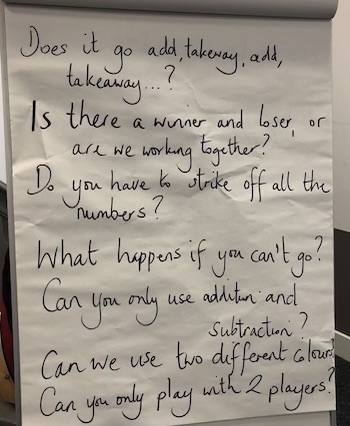 Does it go add, takeway, add,
takeaway...?
Is there a winner and loser, or
are we working together?
Do you have to strike off all the
numbers?
What happens if you can't go?
Can you only use addition and
subtraction?
Can we use two different colours
Can you only play with 2 players?